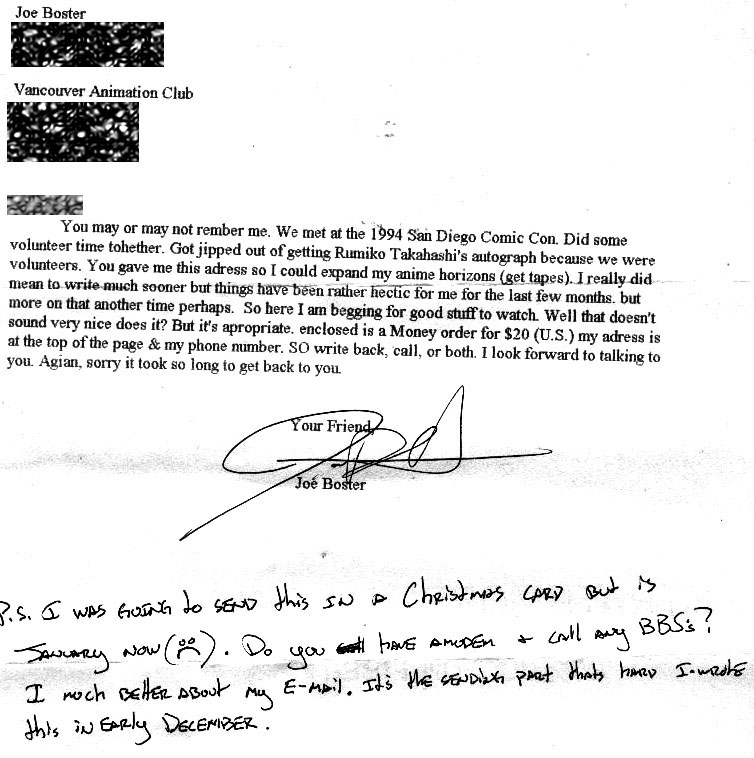 Joe Boster
Vancouver Animation Club
You may or may not rember me. We met at the 1994 San Diego Comic Con. Did some
volunteer time tohether. Got jipped out of getting Rumiko Takahashi's autograph because we were
volunteers. You gave me this adress so I could expand my anime horizons (get tapes). I really did
mean to write much sooner but things have been rather hectic for me for the last few months. but
more on that another time perhaps. So here I am begging for good stuff to watch. Well that doesn't
sound very nice does it? But it's apropriate. enclosed is a Money order for $20 (U.S.) my adress is
at the top of the page & my phone number. SO write back, call, or both. I look forward to talking to
you. Agian, sorry it took so long to get back to you.
Your Friend,
Joe Boster
P.S. I WAS GOING to SEND this IN A Christmas CARD But is
JANUARY NOW (). Do you HAVE A MODEM + CALL ANY BBS's?
I much BETTER ABOUT my E-MAIL. It's the SENDING PART thats HARD I wrote
this in EARly DECEMBER.